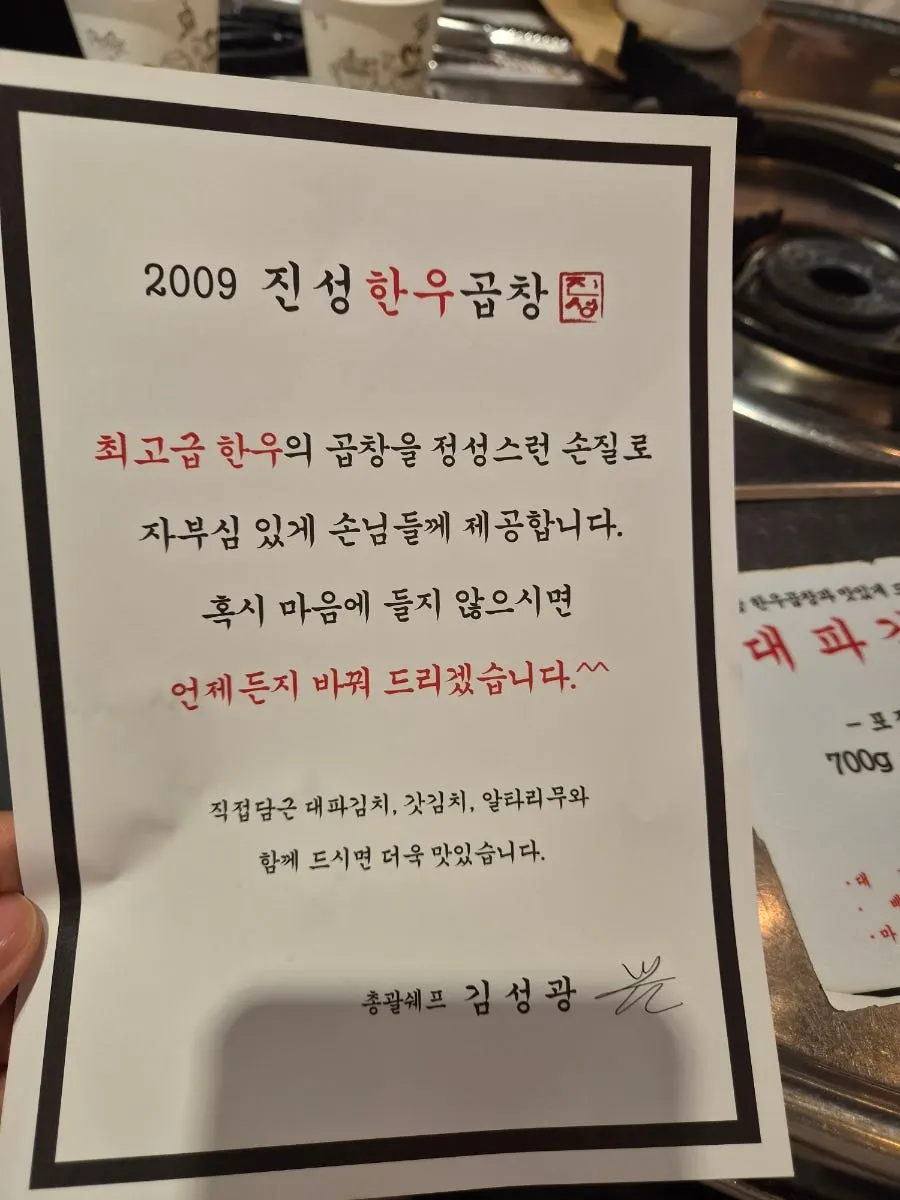 2009 진성한우곱창 진성
최고급 한우의 곱창을 정성스런 손질로
자부심 있게 손님들께 제공합니다.
혹시 마음에 들지 않으시면
언제든지 바꿔 드리겠습니다.^^
직접담근 대파김치, 갓김치, 알타리무와
함께 드시면 더욱 맛있습니다.
총괄쉐프 김성광
한우곱창과 맛있게
대파
700g
·대
·마